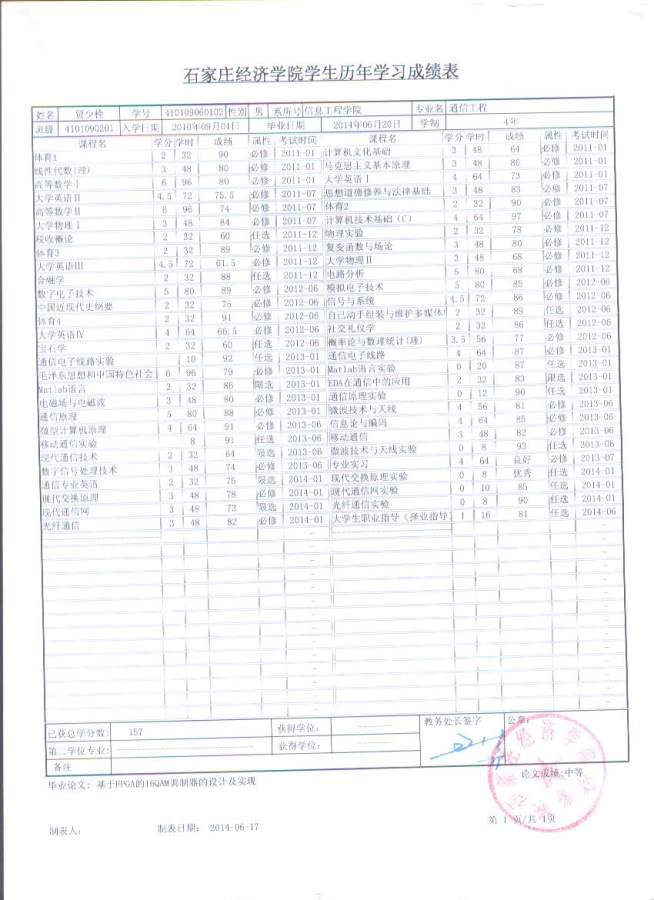 石家庄经济学院学生历年学习成绩表
姓名 贺少栓 学号 410109060102 性别 男 系所号 信息工程学院 专业名 通信工程
班级 4101090201 入学日期 2010年09月01日 毕业日期 2014年06月20日 学制 4年
课程名 学分 学时 成绩 属性 考试时间 课程名 学分 学时 成绩 属性 考试时间
体育1 2 32 90 必修 2011-01 计算机文化基础 3 48 64 必修 2011-01
线性代数(理) 3 48 80 必修 2011-01 马克思主义基本原理 3 48 86 必修 2011-01
高等数学Ⅰ 6 96 80 必修 2011-01 大学英语Ⅰ 4 64 73 必修 2011-01
大学英语Ⅱ 4.5 72 75.5 必修 2011-07 思想道德修养与法律基础 3 48 83 必修 2011-07
高等数学Ⅱ 6 96 74 必修 2011-07 体育2 2 32 90 必修 2011-07
大学物理Ⅰ 3 48 84 必修 2011-07 计算机技术基础(C) 4 64 97 必修 2011-07
税收概论 2 32 60 任选 2011-12 物理实验 2 32 78 必修 2011-12
体育3 2 32 89 必修 2011-12 复变函数与场论 3 48 80 必修 2011-12
大学英语Ⅲ 4.5 72 61.5 必修 2011-12 大学物理Ⅱ 3 48 68 必修 2011-12
金融学 2 32 88 任选 2011-12 电路分析 5 80 68 必修 2011-12
数字电子技术 5 80 89 必修 2012-06 模拟电子技术 5 80 85 必修 2012-06
中国近现代史纲要 2 32 75 必修 2012-06 信号与系统 4.5 72 86 必修 2012-06
体育4 2 32 91 必修 2012-06 自己动手组装与维护多媒体 2 32 89 任选 2012-06
大学英语Ⅳ 4 64 66.5 必修 2012-06 社交礼仪学 2 32 86 任选 2012-06
宝石学 2 32 60 任选 2012-06 概率论与数理统计(理) 3.5 56 77 必修 2012-06
通信电子线路实验 10 92 任选 2013-01 通信电子线路 4 64 87 必修 2013-01
毛泽东思想和中国特色社会 6 96 79 必修 2013-01 Matlab语言实验 0 20 87 任选 2013-01
Matlab语言 2 32 86 限选 2013-01 EDA在通信中的应用 2 32 83 限选 2013-01
电磁场与电磁波 3 48 80 必修 2013-01 通信原理实验 0 12 90 任选 2013-01
通信原理 5 80 88 必修 2013-01 微波技术与天线 4 56 81 必修 2013-06
微型计算机原理 4 64 91 必修 2013-06 信息论与编码 4 64 85 必修 2013-06
移动通信实验 8 91 任选 2013-06 移动通信 3 48 82 必修 2013-06
现代通信技术 2 32 64 限选 2013-06 微波技术与天线实验 0 8 93 任选 2013-06
数字信号处理技术 3 48 74 必修 2013-06 专业实习 4 64 良好 必修 2013-07
通信专业英语 2 32 75 限选 2014-01 现代交换原理实验 0 8 优秀 任选 2014-01
现代交换原理 3 48 78 必修 2014-01 现代通信网实验 0 10 85 任选 2014-01
现代通信网 3 48 73 限选 2014-01 光纤通信实验 0 8 90 任选 2014-01
光纤通信 3 48 82 必修 2014-01 大学生职业指导(择业指导 1 16 81 任选 2014-06
已获总学分数: 157 获得学位: 教务处长签字 公章:
第二学位专业: 获得学位:
备注 论文成绩:中等
毕业论文: 基于FPGA的16QAM调制器的设计及实现
制表人: 制表日期: 2014-06-17 第 1 页/共 1页